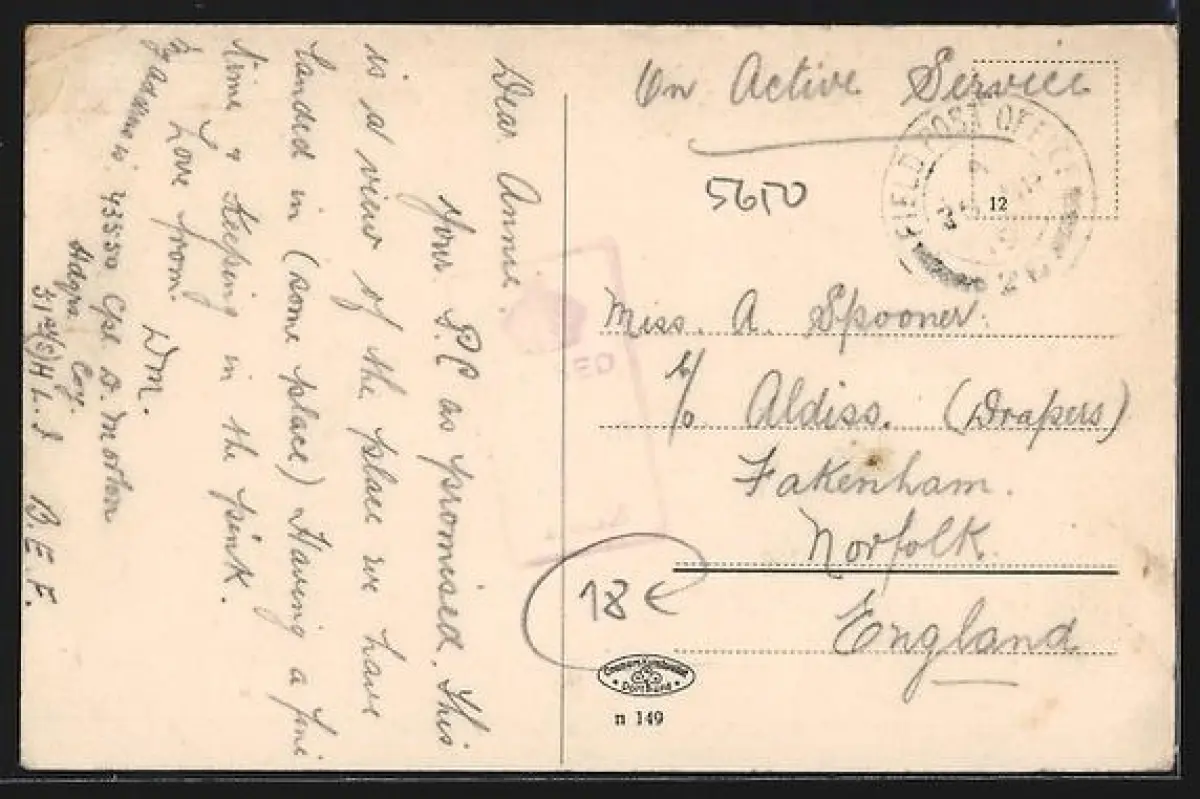 Dear Annie.
Your P.C as promised. This
is a view of the place we have
landed in (some place) Having a fine
time & keeping in the pink.
Love from.
Wm.
43550 Cpl D. Morton
Hdqrs Coy.
51st/(S) H L. I B. E. F.
On Active Service
5650
FIELD POST OFFICE
12
Miss. A. Spooner.
c/o. Aldiss. (Drapers)
Fakenham.
Norfolk.
England
18 €
Dortmund
n 149